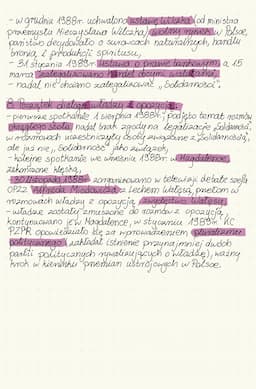 - w grudniu 1988r. uchwalono ustawę Wilczka (od ministra
przemysłu Mieczysława Wilczka), wolny rynek w Polsce,
państwo decydowało o surowcach naturalnych, handlu
bronią, i produkcji spirytusu,
- 31 stycznia 1989r. ustawa o prawie bankowym, a 15
marca zalegalizowano handel obcymi walutami,
- nadal nie chciano zalegalizować „Solidarności".
8. Początek dialogu władzy z opozycją:
- pierwsze spotkanie 1 sierpnia 1988r., podjęto temat rozmów
okrągłego stołu, nadal brak zgody na legalizację Solidarność,
w rozmowach uczestniczyły osoby związane z „Solidarnością",
ale już nie „Solidarność" jako związek,
- kolejne spotkanie we wrześniu 1988r. w Magdalence,
zakończone klęską,
- 30 listopada 1988r. zorganizowano w telewizji debatę szefa
OPZZ Alfreda Miodowicza z Lechem Wałęsą,
rozmowach władzy z opozycją, zwycięstwo Wałęsy,
- władze zostały zmuszone do rozmów z opozycją,
kontynuowano je w Magdalence, w styczniu 1989r. KC
PZPR opowiedziało się za wprowadzeniem pluralizmu
politycznego, zakładał istnienie przynajmniej dwóch
partii politycznych rywalizujących o władzę), ważny
krok w kierunku przemian ustrojowych w Polsce.